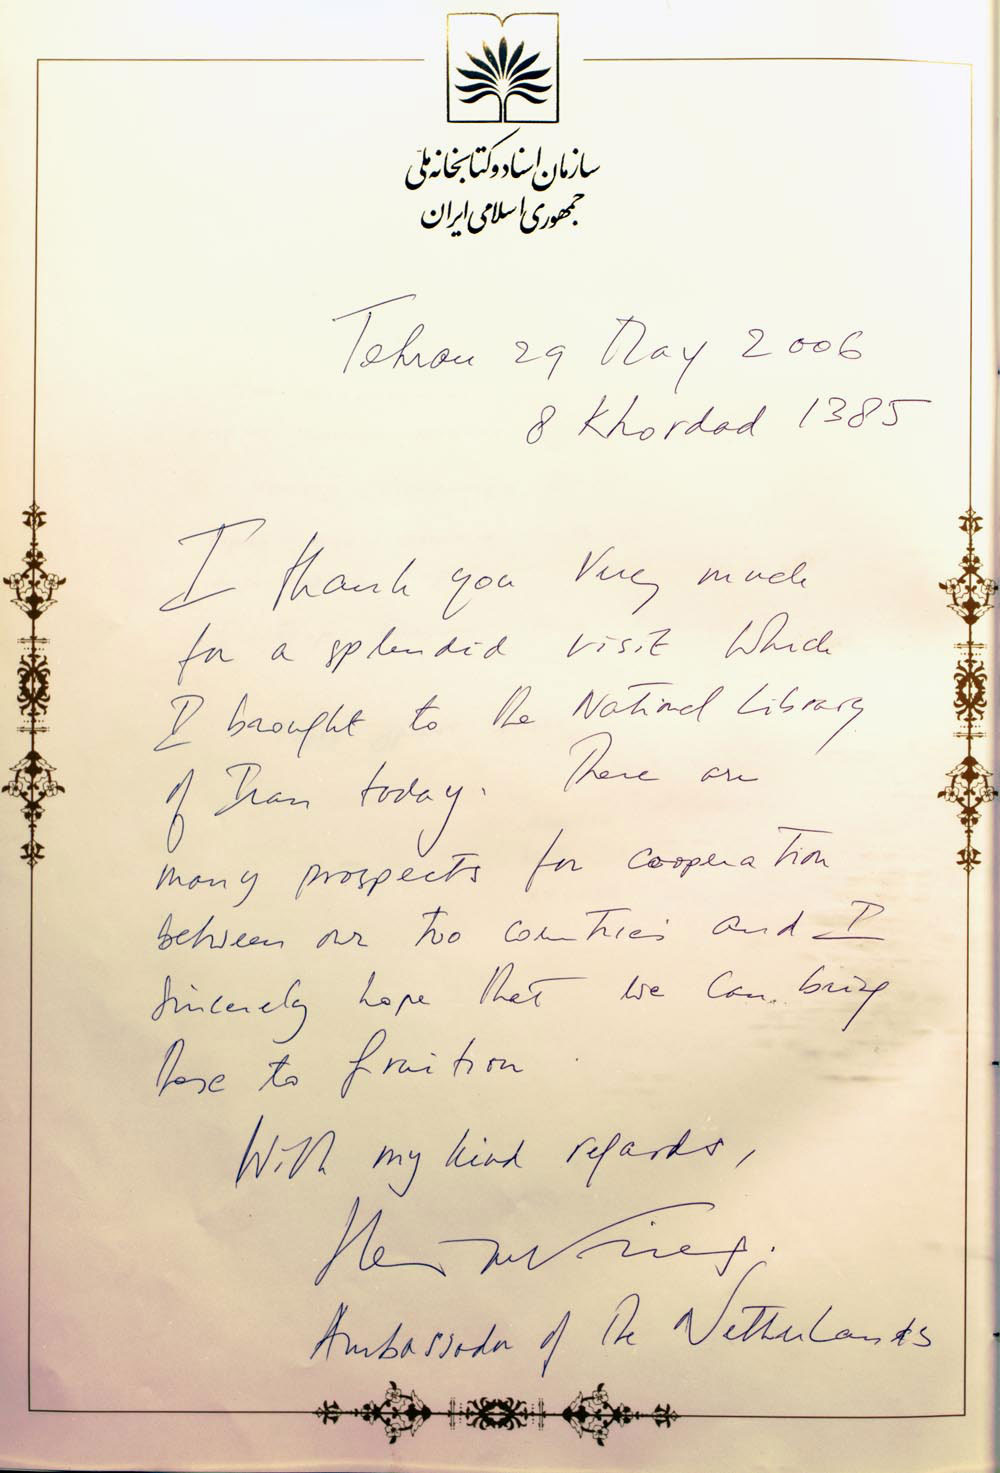 سازمان اسناد و کتابخانه ملی
جمهوری اسلامی ایران
Tehran 29 May 2006
8 Khordad 1385
I thank you very much
for a splendid visit which
I brought to the National Library
of Iran today. There are
many prospects for cooperation
between our two countries and I
sincerely hope that we can bring
these to fruition.
With my kind regards,
Ambassador of the Netherlands